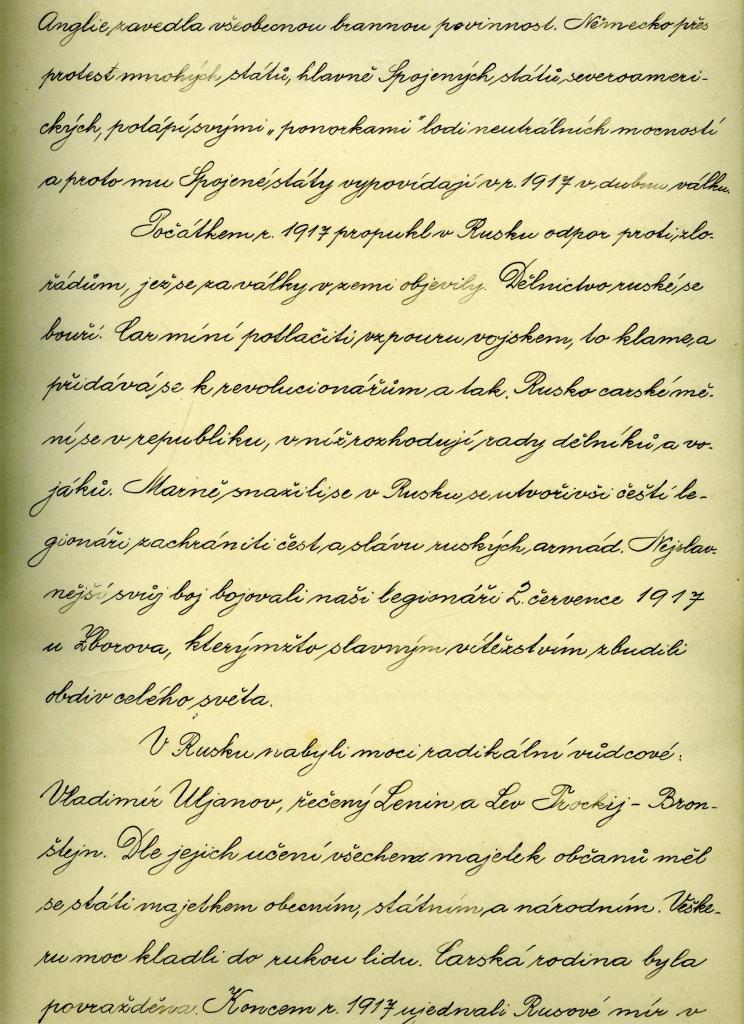 Anglie zavedla všeobecnou brannou povinnost. Německo přes
protest mnohých států, hlavně Spojených států severoameri-
ckých, potápí svými „ponorkami" lodi neutrálních mocností
a proto mu Spojené státy vypovídají v r. 1917 v dubnu válku.
Počátkem r. 1917 propukl v Rusku odpor proti zlo-
řádům, jež se za války v zemi objevily. Dělnictvo ruské se
bouří. Car míní potlačiti vzpouru vojskem, to klame a
přidává se k revolucionářům a tak Rusko carské mě-
ní se v republiku, v níž rozhodují rady dělníků a vo-
jáků. Marně snažili se v Rusku se utvořivší čeští le-
gionáři zachrániti čest a slávu ruských armád. Nejslav-
nější svůj boj bojovali naši legionáři 2. července 1917
u Zborova, kterýmžto slavným vítězstvím zbudili
obdiv celého světa.
V Rusku nabyli moci radikální vůdcové:
Vladimír Uljanov, řečený Lenin a Lev Trockij - Bron-
štejn. Dle jejich učení všechen majetek občanů měl
se státi majetkem obecním, státním a národním. Veške-
ru moc kladli do rukou lidu. Carská rodina byla
povražděna. Koncem r. 1917 ujednali Rusové mír v